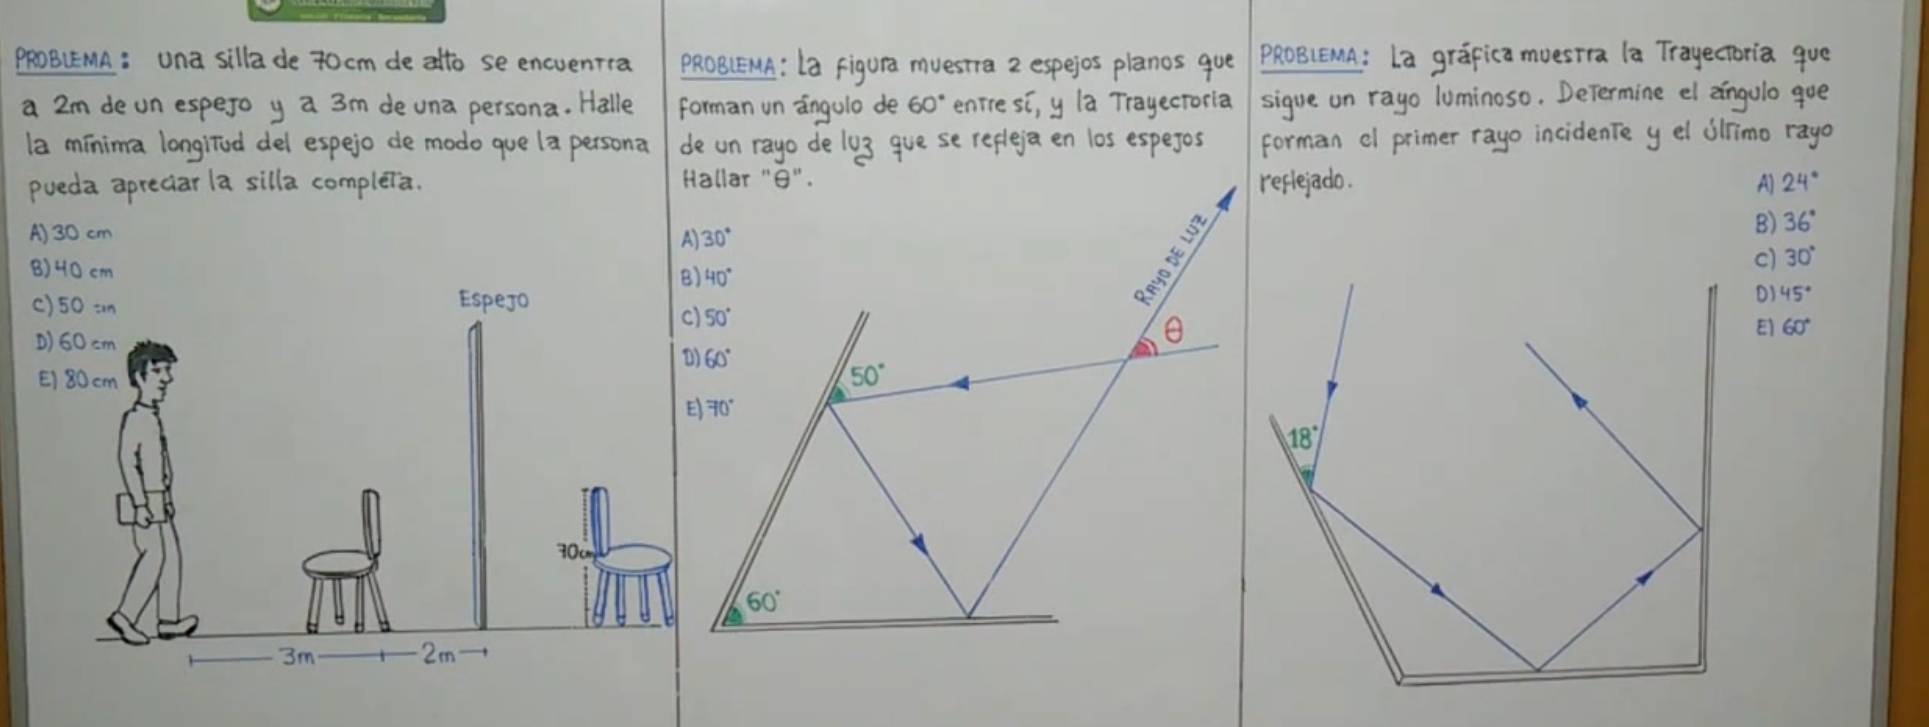 PROBLEMA: una silla de 70cm de alto se encuentra
a 2m de un espejo y a 3m de una persona. Halle
la mínima longitud del espejo de modo que la persona
pueda apreciar la silla completa.
A) 30 cm
B) 40 cm
C) 50 cm
D) 60 cm
E) 80 cm
Espejo
70cm
3m
2m
PROBLEMA: La figura muestra 2 espejos planos que
forman un ángulo de 60° entre sí, y la Trayectoria
de un rayo de luz que se refleja en los espejos
Hallar "θ".
A) 30°
B) 40°
C) 50°
D) 60°
E) 70°
RAYO DE LUZ
θ
50°
60°
PROBLEMA: La gráfica muestra la Trayectoria que
sigue un rayo luminoso. Determine el ángulo que
forman el primer rayo incidente y el último rayo
reflejado.
A) 24°
B) 36°
C) 30°
D) 45°
E) 60°
18°